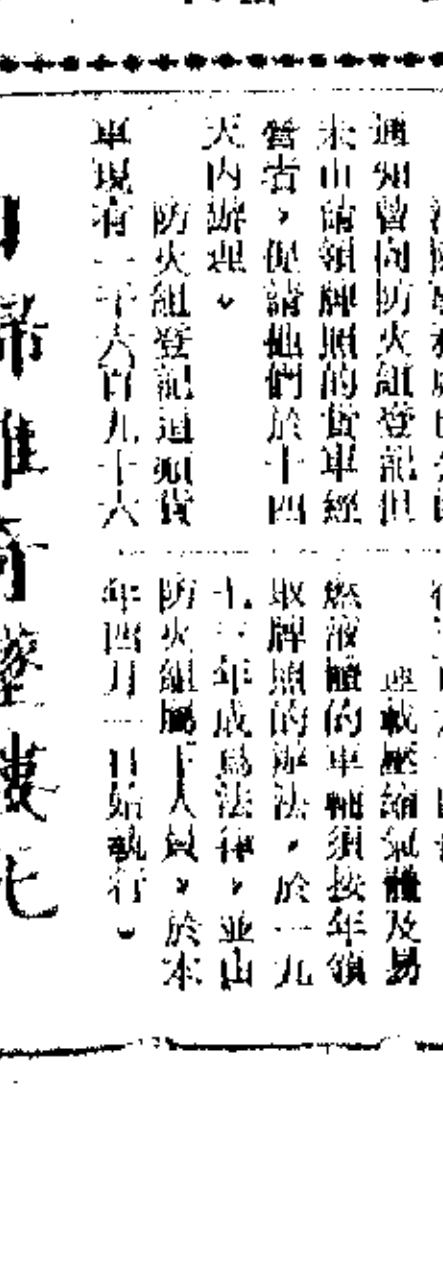 通知曾向防火組登記但
未申請領牌照的貨車經
營者，促請他們於十四
天內辦理。
防火組登記這類貨
車現有一千六百九十六
運載壓縮氣體及易
燃液體的車輛須按年領
取牌照的辦法，於一九
七三年成為法律，並由
防火組屬下人員，於本
年四月一日始執行。
婦難奇墮樓死